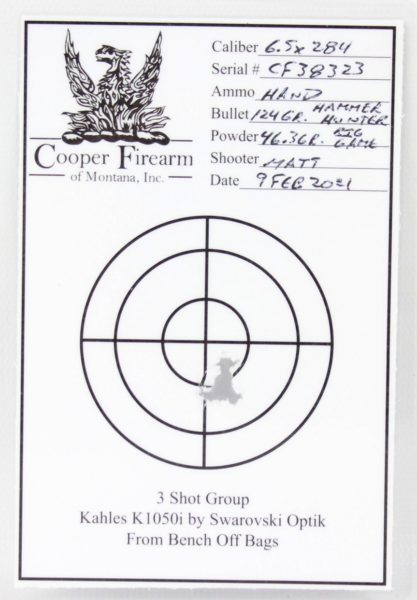 Cooper Firearm
of Montana, Inc.
Caliber 6.5x284
Serial # CF38323
Ammo HAND
Bullet 124GR. HAMMER
HUNTER
Powder 46.3GR. BIG
GAME
Shooter MATT
Date 9 FEB 2021
3 Shot Group
Kahles K1050i by Swarovski Optik
From Bench Off Bags